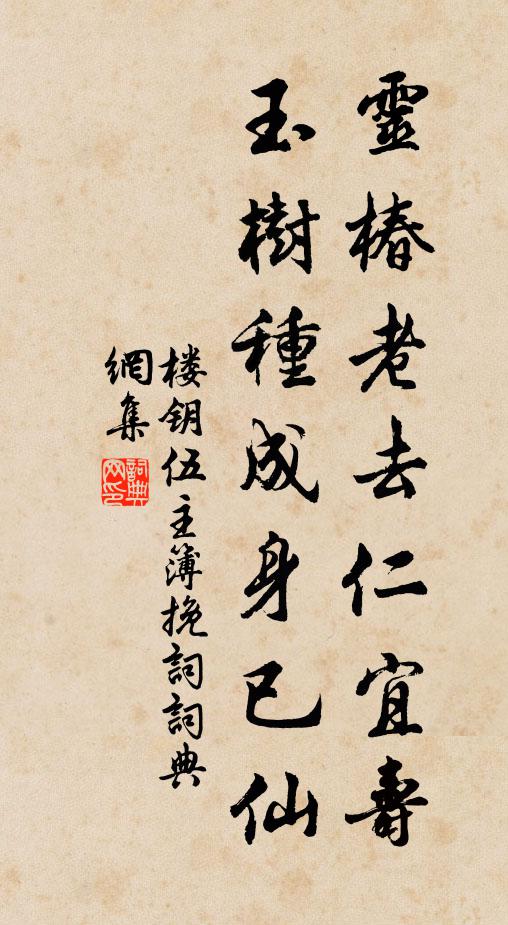 靈椿老去仁宜壽
玉樹種成身已仙
楼钥伍主簿挽詞詞典
網集
詞典
网印